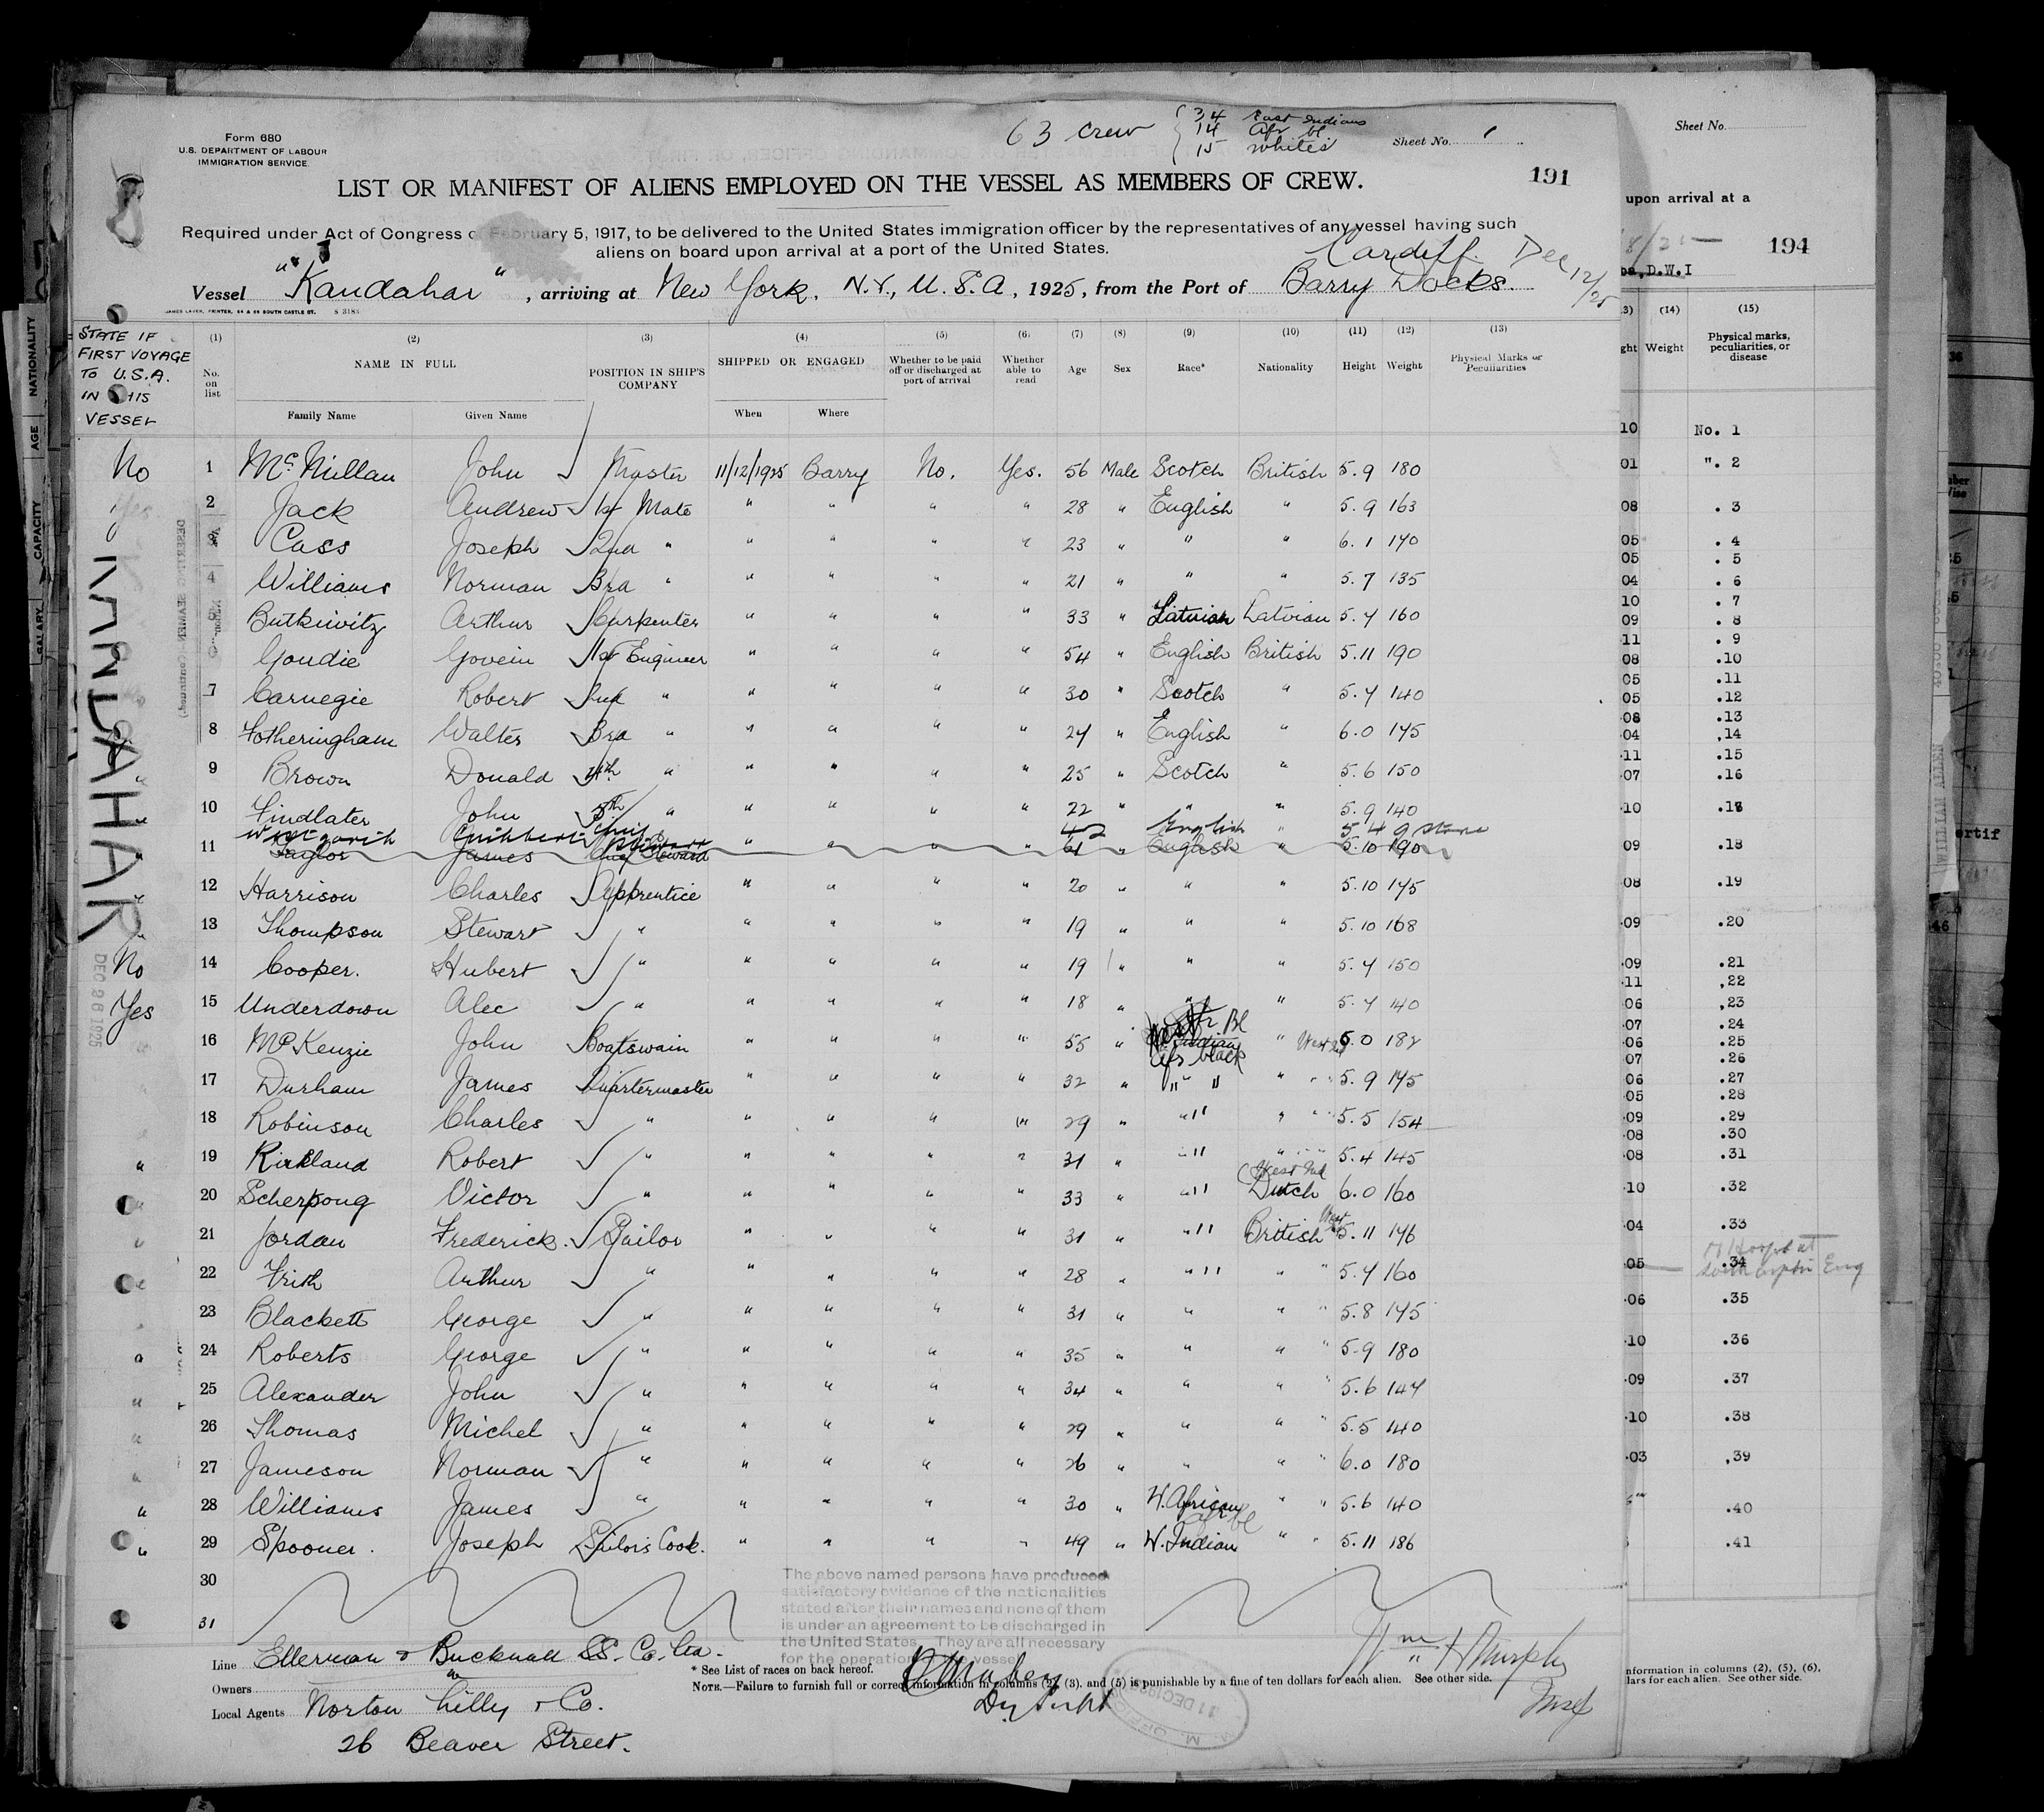 63 crew
34 East Indians
14 Afr bl
15 whites
Sheet No. 1
Form 680
U.S. DEPARTMENT OF LABOUR
IMMIGRATION SERVICE.
191
LIST OR MANIFEST OF ALIENS EMPLOYED ON THE VESSEL AS MEMBERS OF CREW.
Required under Act of Congress of February 5, 1917, to be delivered to the United States immigration officer by the representatives of any vessel having such
aliens on board upon arrival at a port of the United States.
Cardiff. Dec 12/25
Vessel "Kandahar", arriving at New York, N.Y., U.S.A, 1925, from the Port of Barry Docks.
STATE IF FIRST VOYAGE TO U.S.A. IN THIS VESSEL
(1) (2) (3) (4) (5) (6) (7) (8) (9) (10) (11) (12) (13)
No. on list
NAME IN FULL
POSITION IN SHIP'S COMPANY
SHIPPED OR ENGAGED
Whether to be paid off or discharged at port of arrival
Whether able to read
Age Sex Race* Nationality Height Weight Physical Marks or Peculiarities
Family Name Given Name When Where
No 1 McMillan John Master 11/12/1925 Barry No. Yes. 56 Male Scotch British 5.9 180
2 Jack Andrew 1st Mate " " " " 28 " English " 5.9 163
Cass Joseph 2nd " " " " " 23 " " " 6.1 170
4 Williams Norman 3rd " " " " " 21 " " " 5.7 135
Butkiwitz Arthur Carpenter " " " " 33 " Latvian Latvian 5.7 160
Goudie Govein 1st Engineer " " " " 54 " English British 5.11 190
7 Carnegie Robert 2nd " " " " " 30 " Scotch " 5.7 140
8 Fotheringham Walter 3rd " " " " " 24 " English " 6.0 175
9 Brown Donald 4th " " " " " 25 " Scotch " 5.6 150
10 Findlater John 5th " " " " " 22 " " " 5.9 140
Cuthbert Chief Steward 42 English " 5.4 9 stone
11 Taylor James Chief Steward " " " " 61 " English " 5.10 190
12 Harrison Charles Apprentice " " " " 20 " " " 5.10 175
13 Thompson Stewart " " " " " 19 " " " 5.10 168
No 14 Cooper. Hubert " " " " " 19 " " " 5.7 150
Yes 15 Underdown Alec " " " " " 18 " " " 5.7 140
16 McKenzie John Boatswain " " " " 55 " Afr black " West Ind 6.0 182
17 Durham James Quartermaster " " " " 32 " " " " 5.9 175
18 Robinson Charles " " " " " 29 " " " 5.5 154
" 19 Kirkland Robert " " " " " 31 " " " 5.4 145
20 Scherpong Victor " " " " " 33 " " (West Ind Dutch 6.0 160
" 21 Jordan Frederick. Sailor " " " " 31 " " British West 5.11 176
22 Frith Arthur " " " " " 28 " " " 5.7 160
23 Blackett George " " " " " 31 " " " 5.8 175
" 24 Roberts George " " " " " 35 " " " 5.9 180
" 25 Alexander John " " " " " 34 " " " 5.6 147
" 26 Thomas Michel " " " " " 29 " " " 5.5 140
" 27 Jameson Norman " " " " " 26 " " " 6.0 180
" 28 Williams James " " " " " 30 " W. African " 5.6 140
afr bl
" 29 Spooner. Joseph Sailors Cook. " " " " 49 " W. Indian " 5.11 186
30
31
KANDAHAR
DEC 26 1925
The above named persons have produced
satisfactory evidence of the nationalities
stated after their names and none of them
is under an agreement to be discharged in
the United States. They are all necessary
for the operation of the vessel
Line Ellerman & Bucknall SS. Co. Ltd.
Owners "
Local Agents Norton Lilly & Co.
26 Beaver Street.
* See List of races on back hereof.
NOTE.—Failure to furnish full or correct information in columns (2), (3). and (5) is punishable by a fine of ten dollars for each alien. See other side.
Wm H Murphy
Insp
11 DEC 1925
Sheet No.
upon arrival at a
194
D.W.I
(14) (15)
Weight
Physical marks, peculiarities, or disease
10 No. 1
01 ". 2
08 . 3
05 . 4
05 . 5
04 . 6
10 . 7
09 . 8
11 . 9
08 .10
05 .11
05 .12
08 .13
04 .14
11 .15
07 .16
10
09 .18
08 .19
09 .20
09 .21
11 .22
06 .23
07 .24
06 .25
07 .26
06 .27
05 .28
09 .29
08 .30
08 .31
10 .32
04 .33
05 .34
06 .35
10 .36
09 .37
10 .38
03 .39
.40
.41
nformation in columns (2), (5), (6),
lars for each alien. See other side.
NATIONALITY
AGE
CAPACITY
SALARY